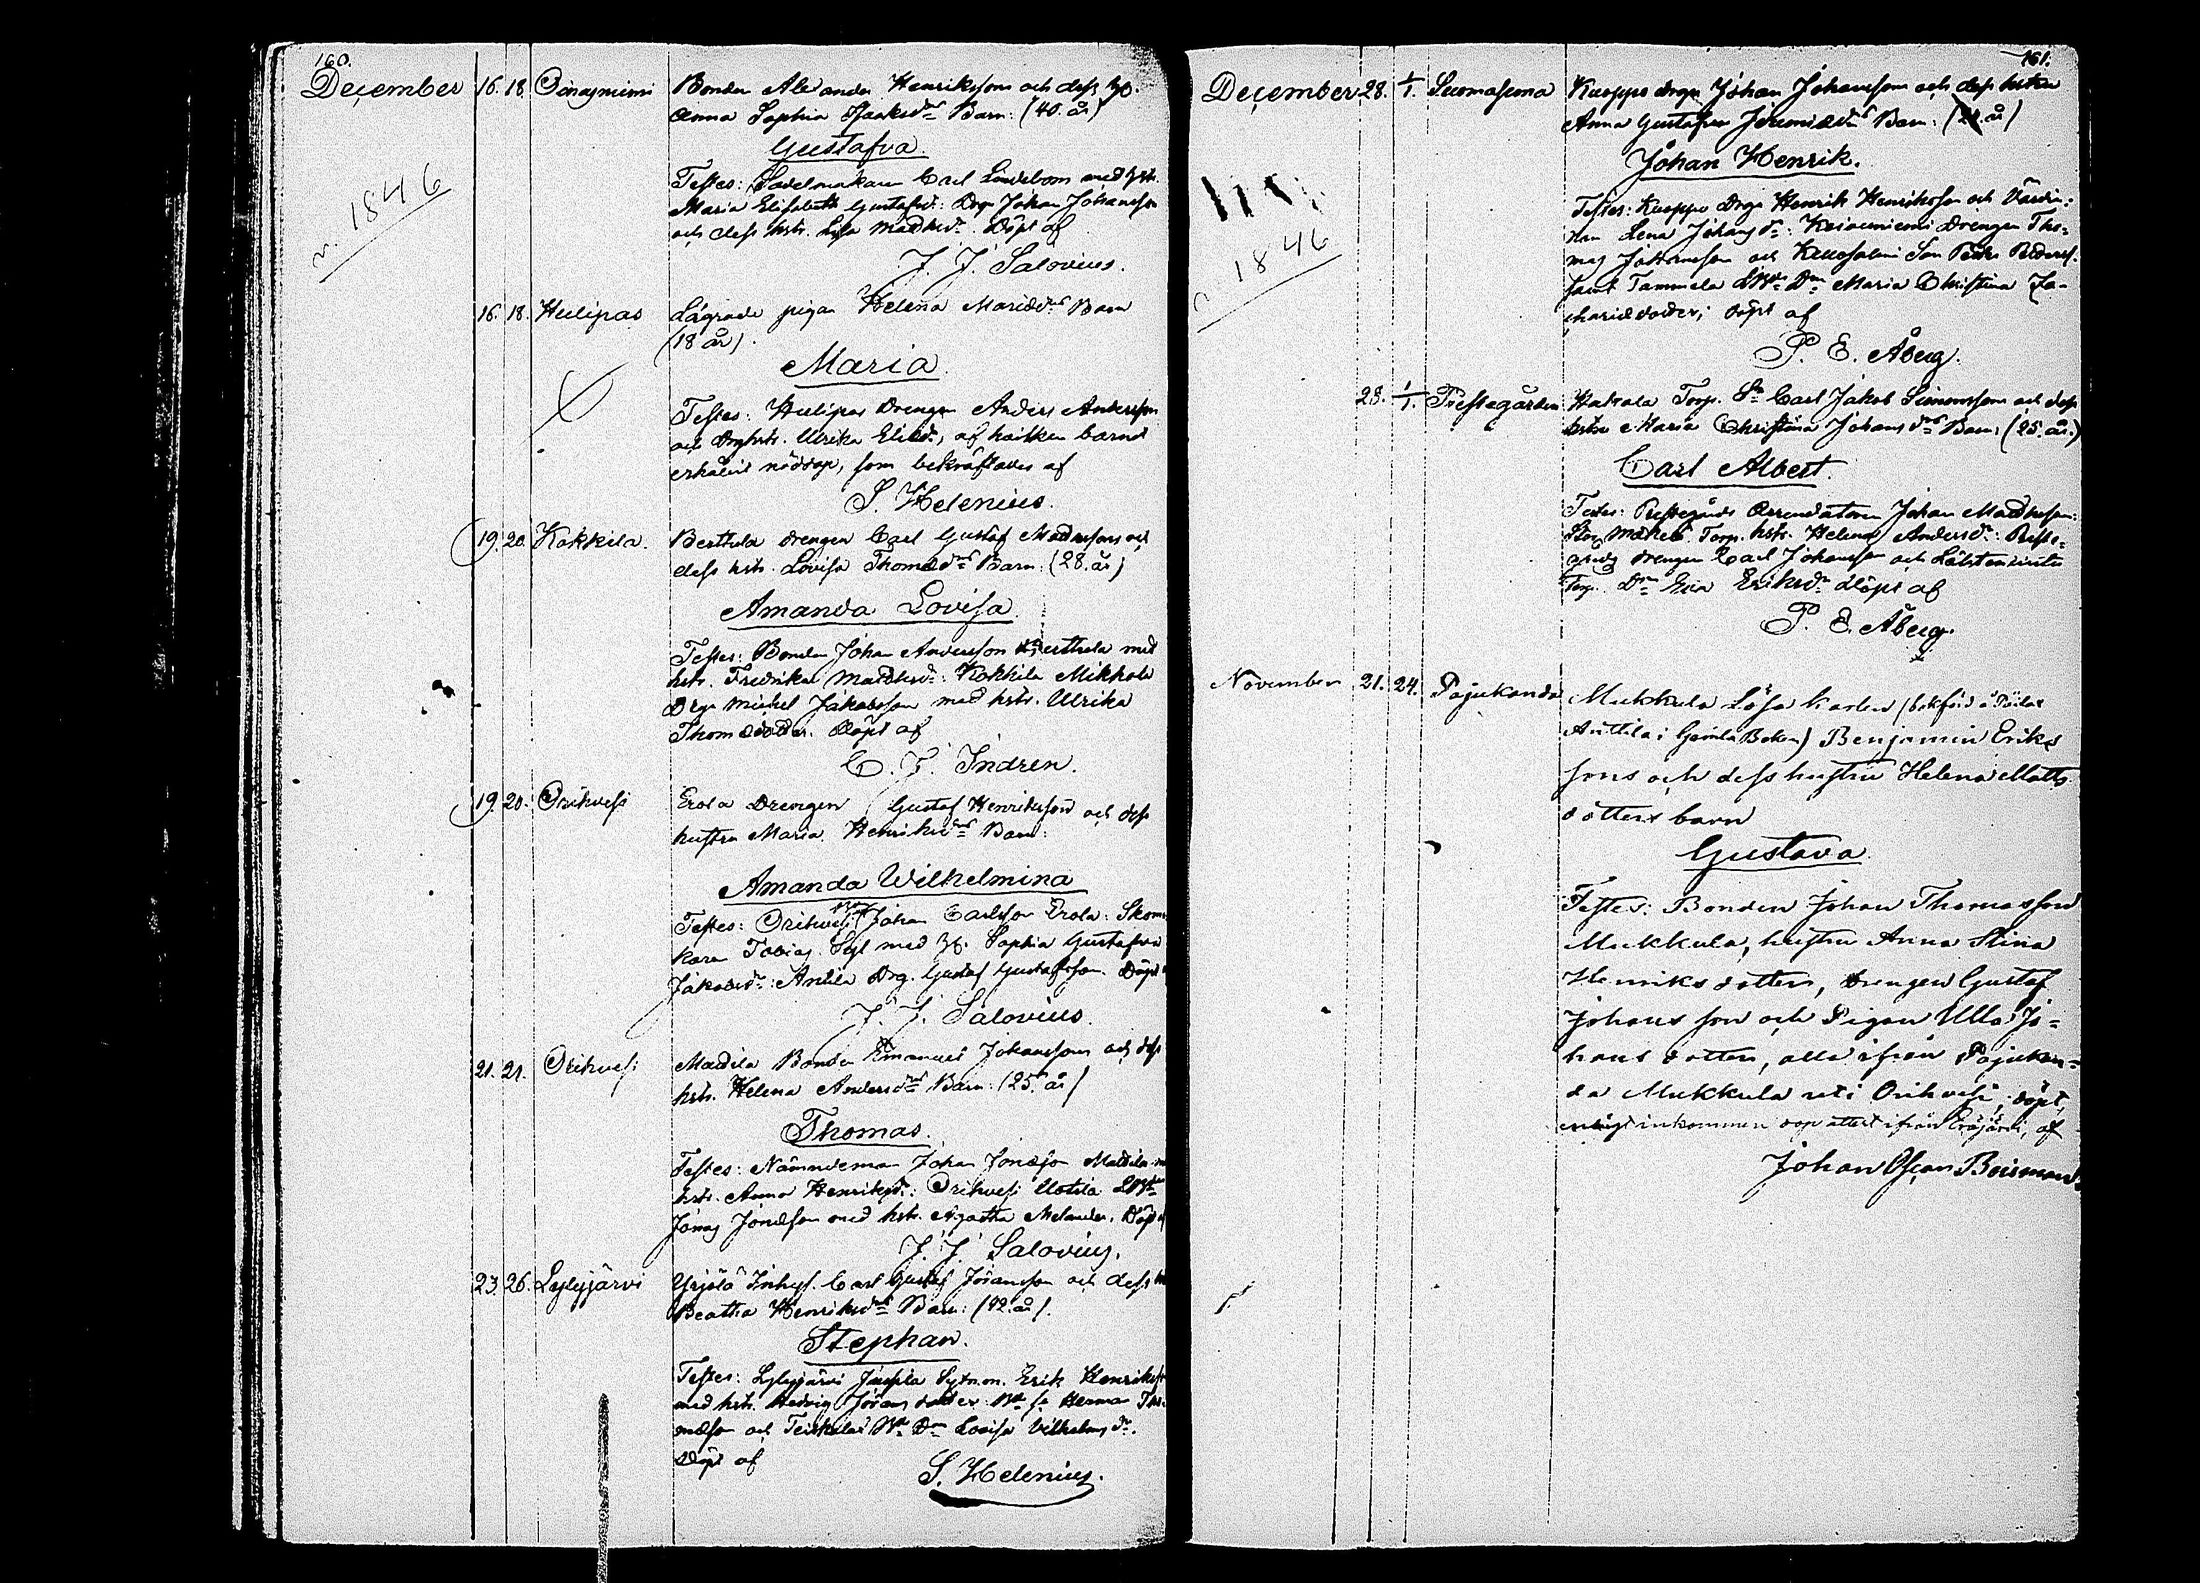 160.
December 16. 18.
v. 1846
Bonden Alexander Henrikssons och dess
Anna Sophia Isaaksdrs Barn: (40. år)
Gustafva.
Testes: Sadelmakare Carl Lindebom med
Maria Elisabeth Gustafsdr: Drg. Johan Johansson
och dess hstr. Lisa Madhsdr. Döpt af
J. J. Salovius.
16. 18. Hulipas Lägrade pigan Helena Mariædrs Barn
(18 år).
Maria
Testes: Hulipas Drengen Anders Andersson
och Drghstr. Ulrika Eliædr, af hvilken barnet
erhållit nöddop, som bekräftades af
S. Helenius.
19. 20. Kokkila. Berttula drengen Carl Gustaf Madhssons och
dess hstr. Lovisa Thomædrs Barn: (28. år)
Amanda Lovisa
Testes: Bonden Johan Andersson Berttula med
hstr. Fredrika Madhsdr: Kokkila Mikkola
Drg. Michel Jakobsson med hstr. Ulrika
Thomædotter. Döpt af
C. J. Indren.
19. 20. Orihvesi Erola Drengen Gustaf Henrikssons och dess
hustru Maria Henriksdrs Barn:
Amanda Wilhelmina
Testes: Orihvesi Johan Carlsson Erola: Skoma
kare Tobias med Sophia Gustafva
Jakobsdr: Anttila Drg. Gustaf Gustafsson. Döpt
J. J. Salovius.
21. 21. Orihvesi Mattila Bonden Emanuel Johanssons och dess
hstr. Helena Andersdrs Barn: (25. år)
Thomas.
Testes: Nämndeman Johan Jonæson Mattila
hstr. Anna Henriksdr: Orihvesi Uotila
Jonas Jonæson med hstr. Agatha Melander. Döpt
J. J. Salovius.
23. 26. Lylyjärvi Yrjölä Inhys. Carl Gustaf Göransson och dess
Beatha Henriksdrs Barn: (42. år).
Stephan.
Testes: Lylyjärvi Juupla Sytnm. Erik Henriksson
med hstr. Hedvig Görans dotter: Herman Tho
mæson och Lovisa Vilhelmsdr.
Döpt af
S. Helenius.
161.
December 28. 1/1. Suomasema Kuoppa drgn Johan Johanssons och dess hustru
Anna Gustafva Jeremiædrs Barn: (21. år)
v. 1846
Johan Henrik.
Testes: Kuoppa Drgn Henrik Henriksson och Värdin-
nan Lena Johansdr: Koivuniemi Drengen Tho-
mas Johansson och
samt Tammela Maria Christina Za-
chariædotter; döpt af
P. E. Åberg.
28. 1/1. Prestegården Hakala Torp. Sn Carl Jakob Simonssons och dess
hstru Maria Christina Johansdrs Barn: (25. år.)
Carl Albert.
Testes: Prestegårds Arrendatorn Johan Madhsson:
Torp. hstr. Helena Andersdr: Preste-
gårds drengen Carl Johansson och
Torp. Dr. Eva Eriksdr. döpt af
P. E. Åberg.
November 21. 24. Pajukanda Mukkula Lösa karlen (bokförd å
Anttila i Gamla Boken) Benjamin Eriks
sons och dess hustru Helena Matts
dotters barn
Gustava
Testes: Bonden Johan Thomasson
Mukkula, hustru Anna Stina
Henriks dotter, Drengen Gustaf
Johans son och Pigan Ulla Jo-
hans dotter, alla ifrån Pajukan-
da Mukkula uti Orihvesi, döpt,
enligt inkommen dop attest ifrån Eräjärvi, af
Johan Oscar Boisman.